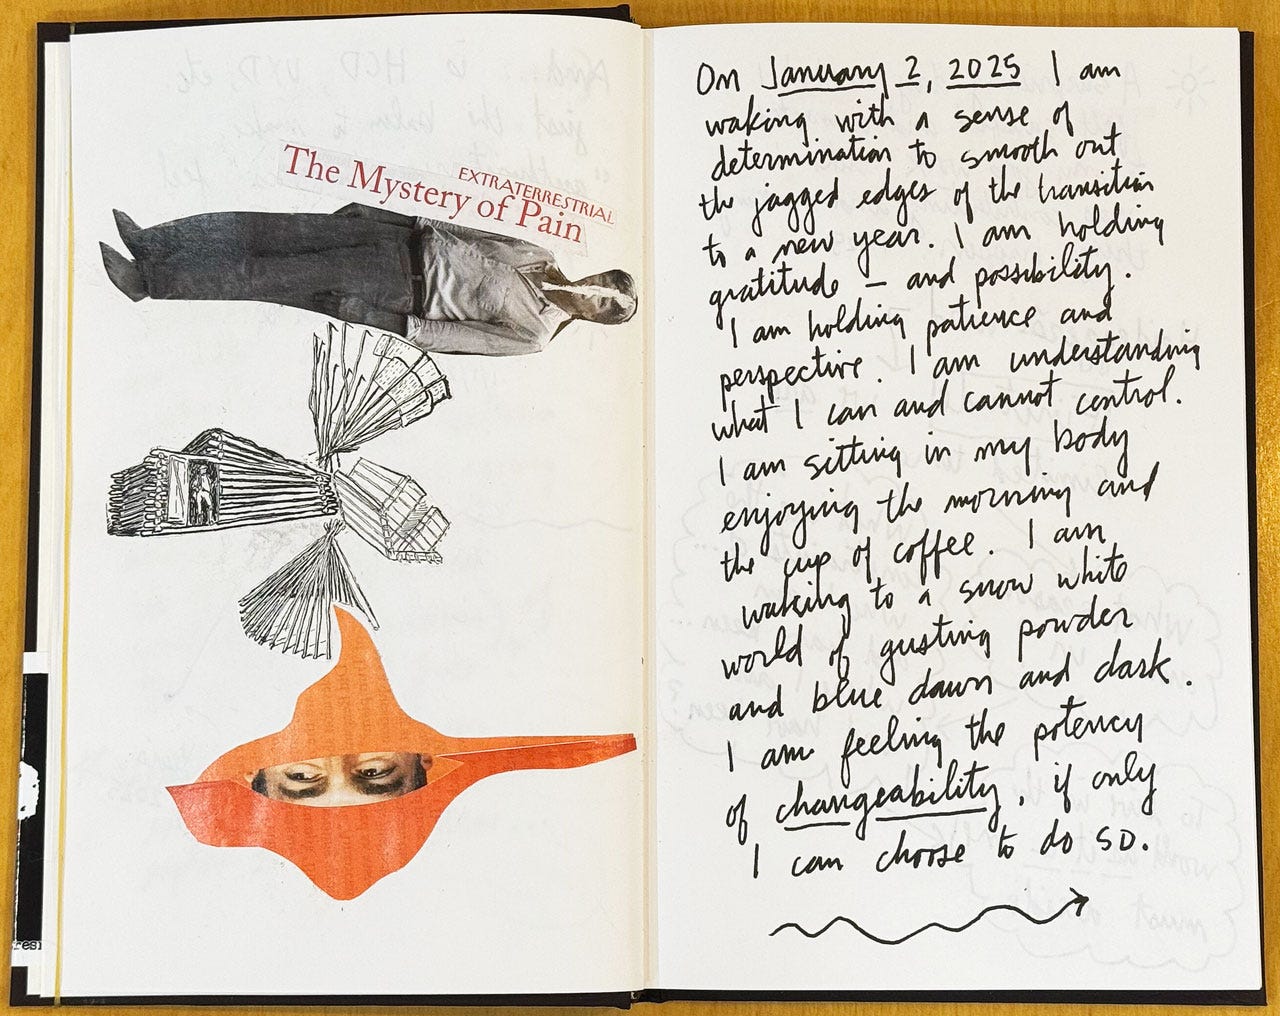 The Mystery of Pain
EXTRATERRESTRIAL
On January 2, 2025 I am
waking with a sense of
determination to smooth out
the jagged edges of the transition
to a new year. I am holding
gratitude – and possibility.
I am holding patience and
perspective. I am understanding
what I can and cannot control.
I am sitting in my body
enjoying the morning and
the cup of coffee. I am
waking to a snow white
world of gusting powder
and blue dawn and dark.
I am feeling the potency
of changeability, if only
I can choose to do so.